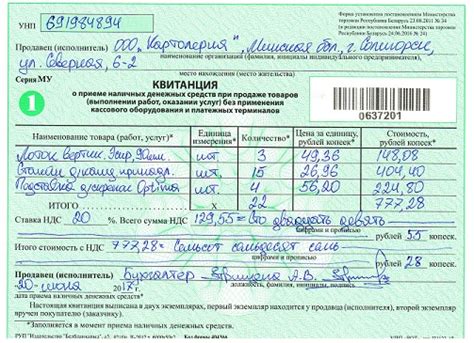 УНП 691984894
Форма установлена постановлением Министерства
торговли Республики Беларусь 23.08.2011 № 34
(в редакции постановления Министерства
торговли Республики Беларусь 24.06.2016 № 24)
Продавец (исполнитель) ООО „Картолерия“, Минская обл., г. Солигорск,
наименование организации (фамилия, инициалы индивидуального предпринимателя),
ул. Северная, 6-2
место нахождения (место жительства)
Серия МУ
КВИТАНЦИЯ
1 о приеме наличных денежных средств при продаже товаров
(выполнении работ, оказании услуг) без применения
кассового оборудования и платежных терминалов
0637201
Наименование товара (работ, услуг)* Единица измерения* Количество* Цена за единицу, рублей копеек* Стоимость, рублей копеек*
Лоток вертик. шт. 3 49,36 148,08
шт. 15 26,96 404,40
Подставка Optima шт. 4 56,20 224,80
x 22 x 777,28
Ставка НДС 20 % Всего сумма НДС 129,55 = Сто двадцать девять
цифрами и прописью
рублей 55 копеек.
Итого стоимость с НДС 777,28 = Семьсот семьдесят семь
цифрами и прописью
рублей 28 копеек.
Продавец (исполнитель) Бухгалтер А.В.
должность, фамилия, инициалы, подпись
20 июня 2017 г.
дата приема наличных денежных средств*
Настоящая квитанция выписана в двух экземплярах, первый экземпляр находится у продавца (исполнителя), второй экземпляр
вручен покупателю (заказчику).
*Заполняется в момент приема наличных денежных средств.